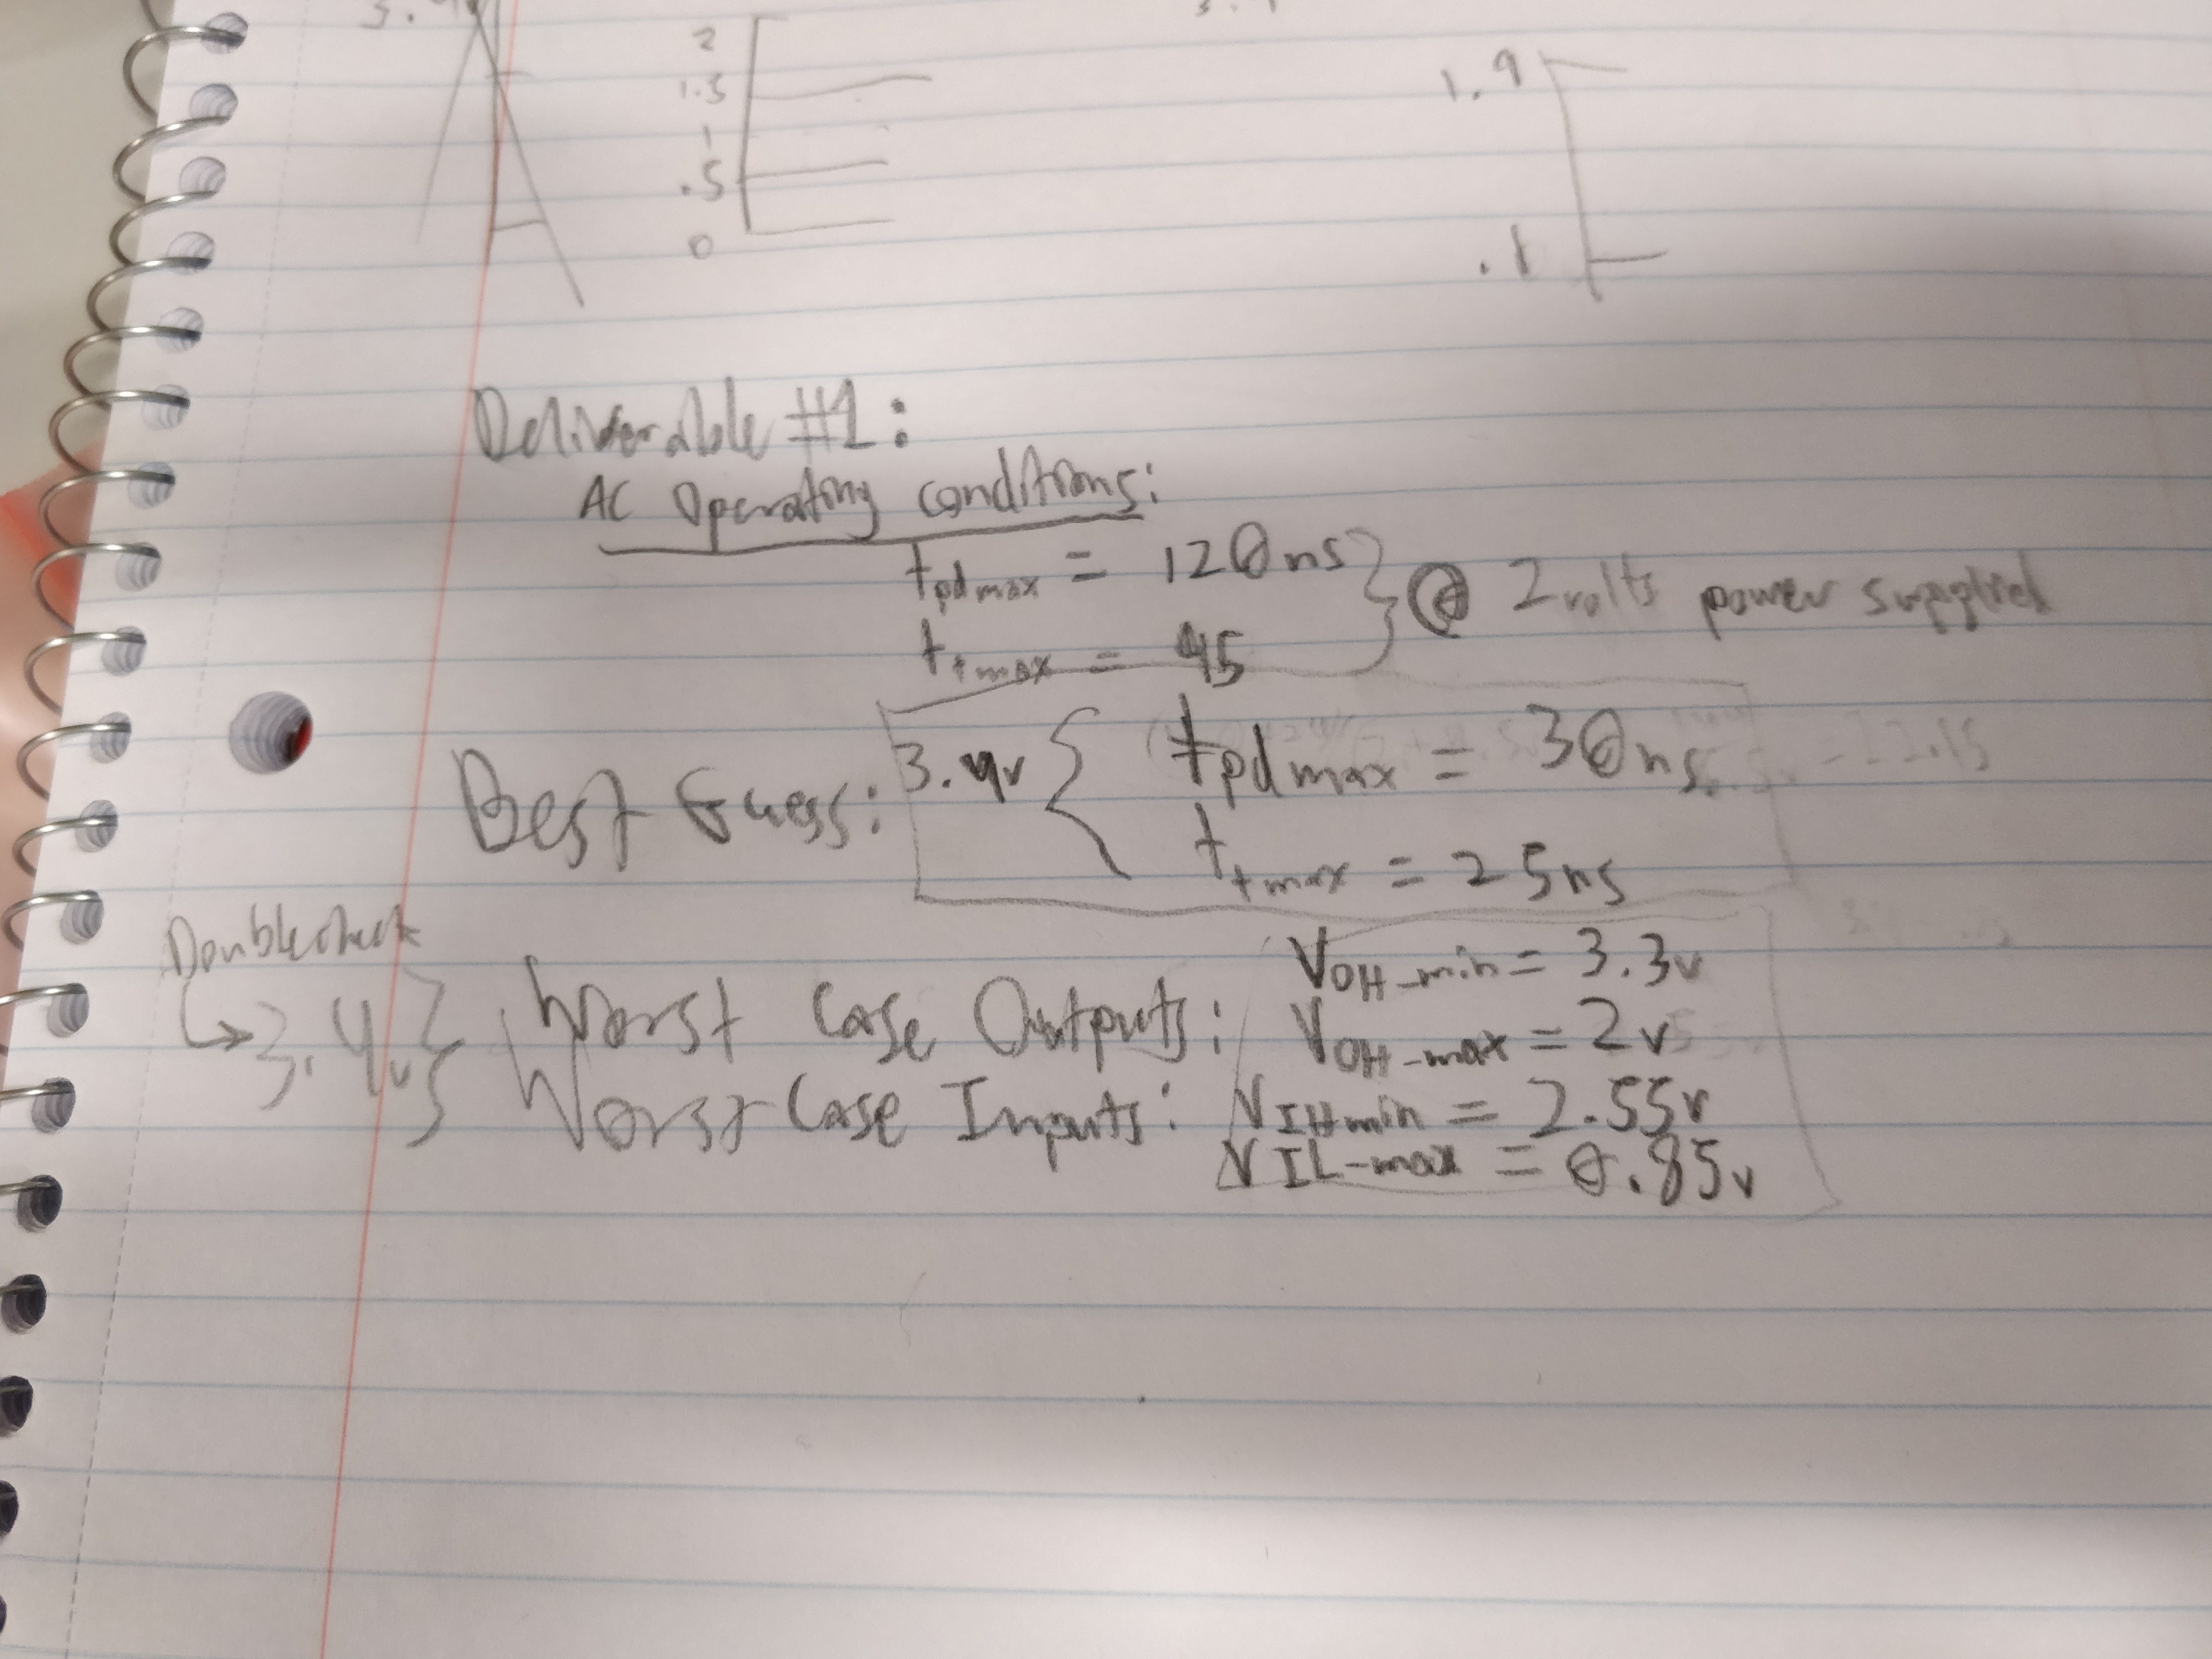 2
1.5
1
.5
0
1.9
.1
Deliverable #1:
AC Operating conditions:
tpdmax = 120ns
ttmax = 45
} @ 2volts power supplied
Best Guess:
3.4v { tpdmax = 30ns
ttmax = 25ns
Doublecheck
↳ 3.4v }
Worst Case Outputs: VOH-min = 3.3v
VOH-max = 2v
Worst Case Inputs: VIHmin = 2.55v
VIL-max = 0.85v